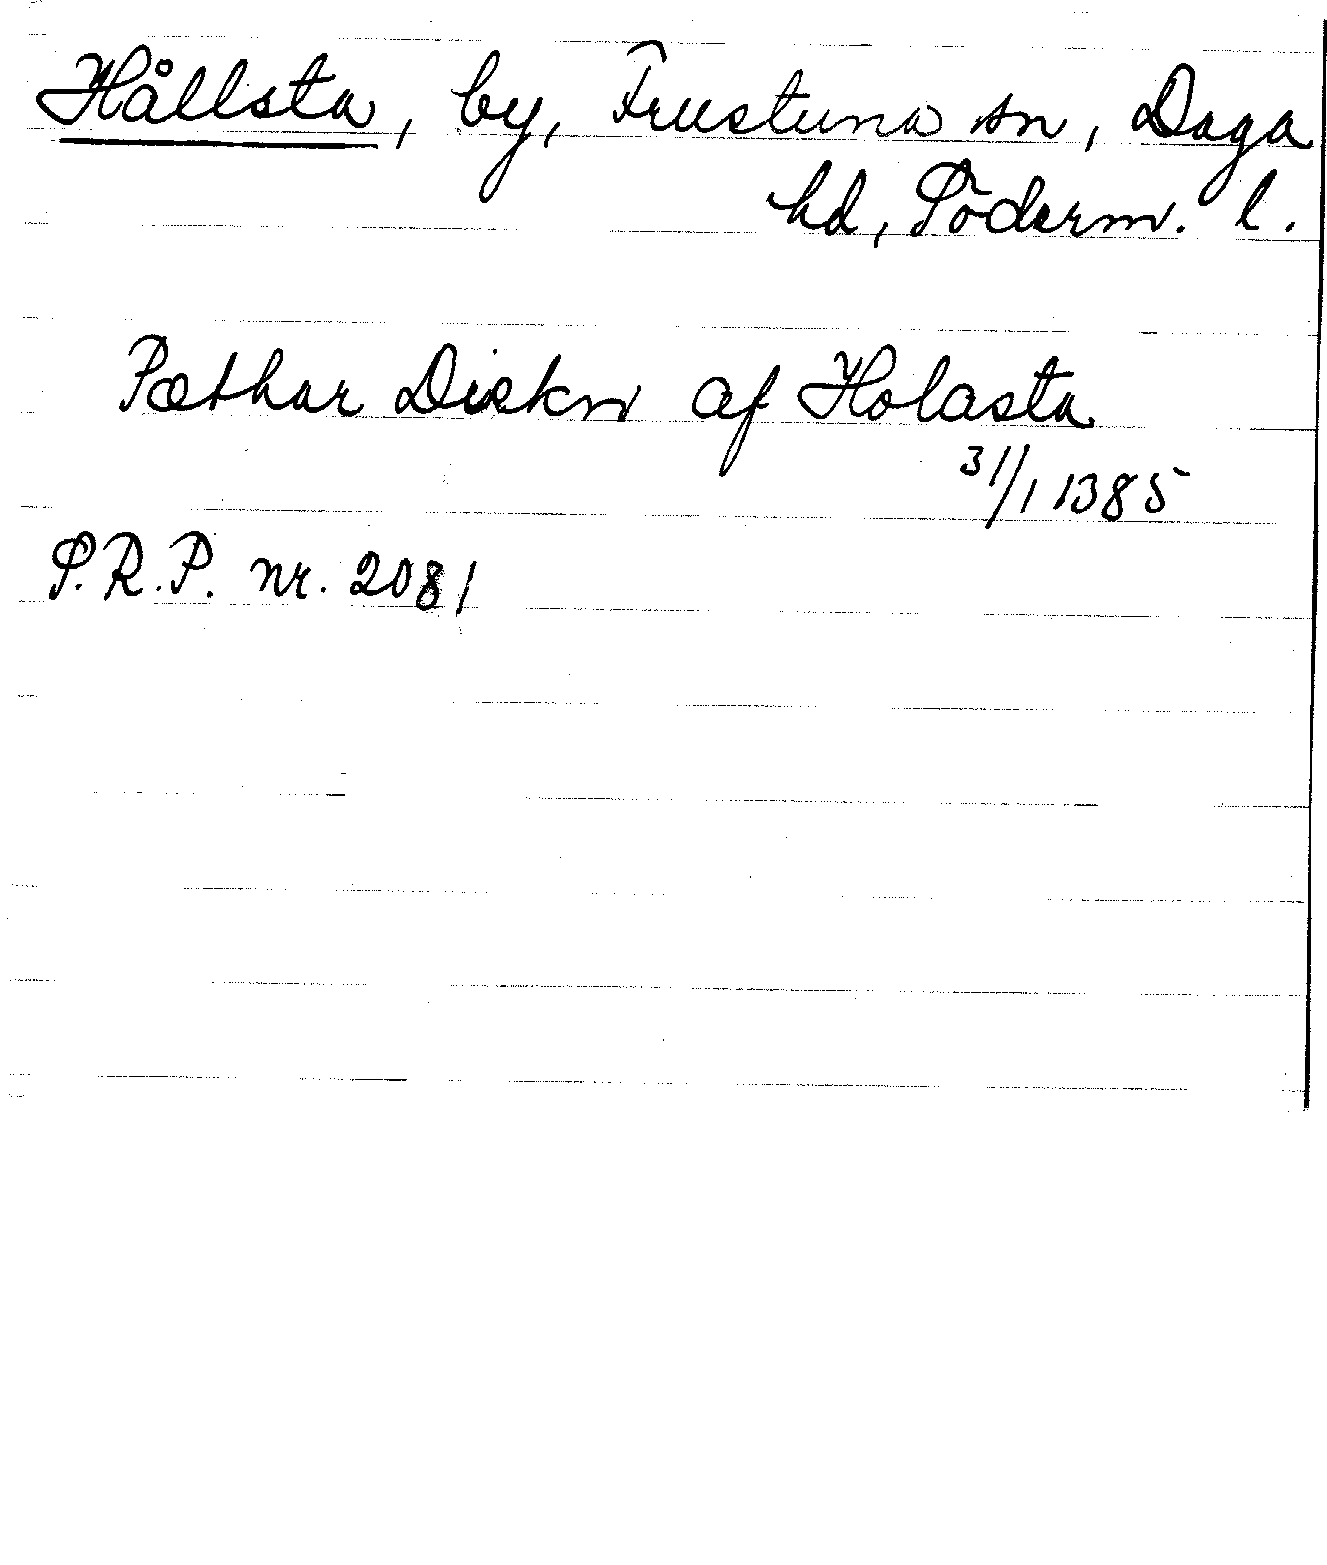 Hållsta, by, Frustuna sn, Daga
hd, Söderm. l.
Pæthar Diekn af Holasta
31/1 1385
S.R.P. nr. 2081